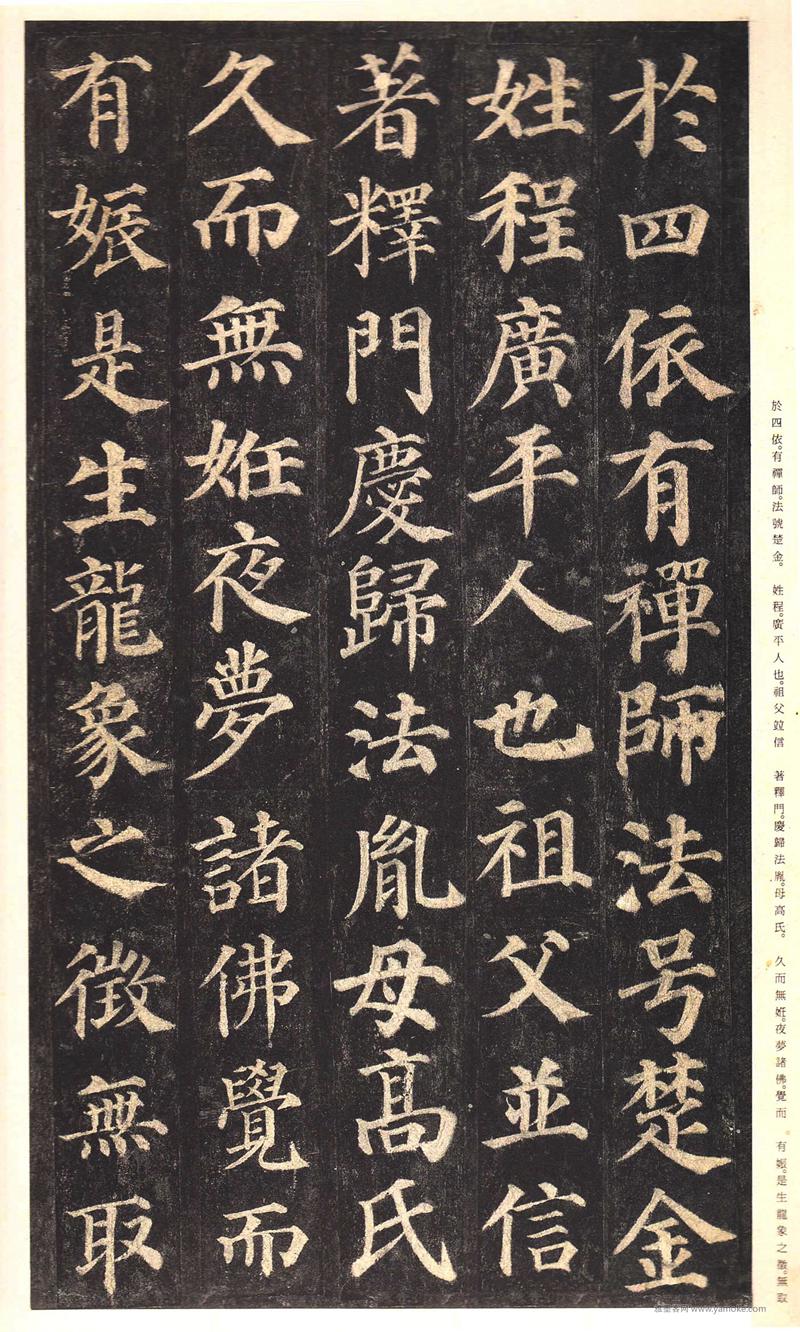 於四依有禪師法号楚金
姓程廣平人也祖父並信
著釋門慶歸法胤母高氏
久而無姙夜夢諸佛覺而
有娠是生龍象之徵無取
於四依。有禪師。法號楚金。 姓程。廣平人也。祖父竝信 著釋門。慶歸法胤。母高氏。 久而無姙。夜夢諸佛。覺而 有娠。是生龍象之徵。無取
雅墨客网 www.yamoke.com